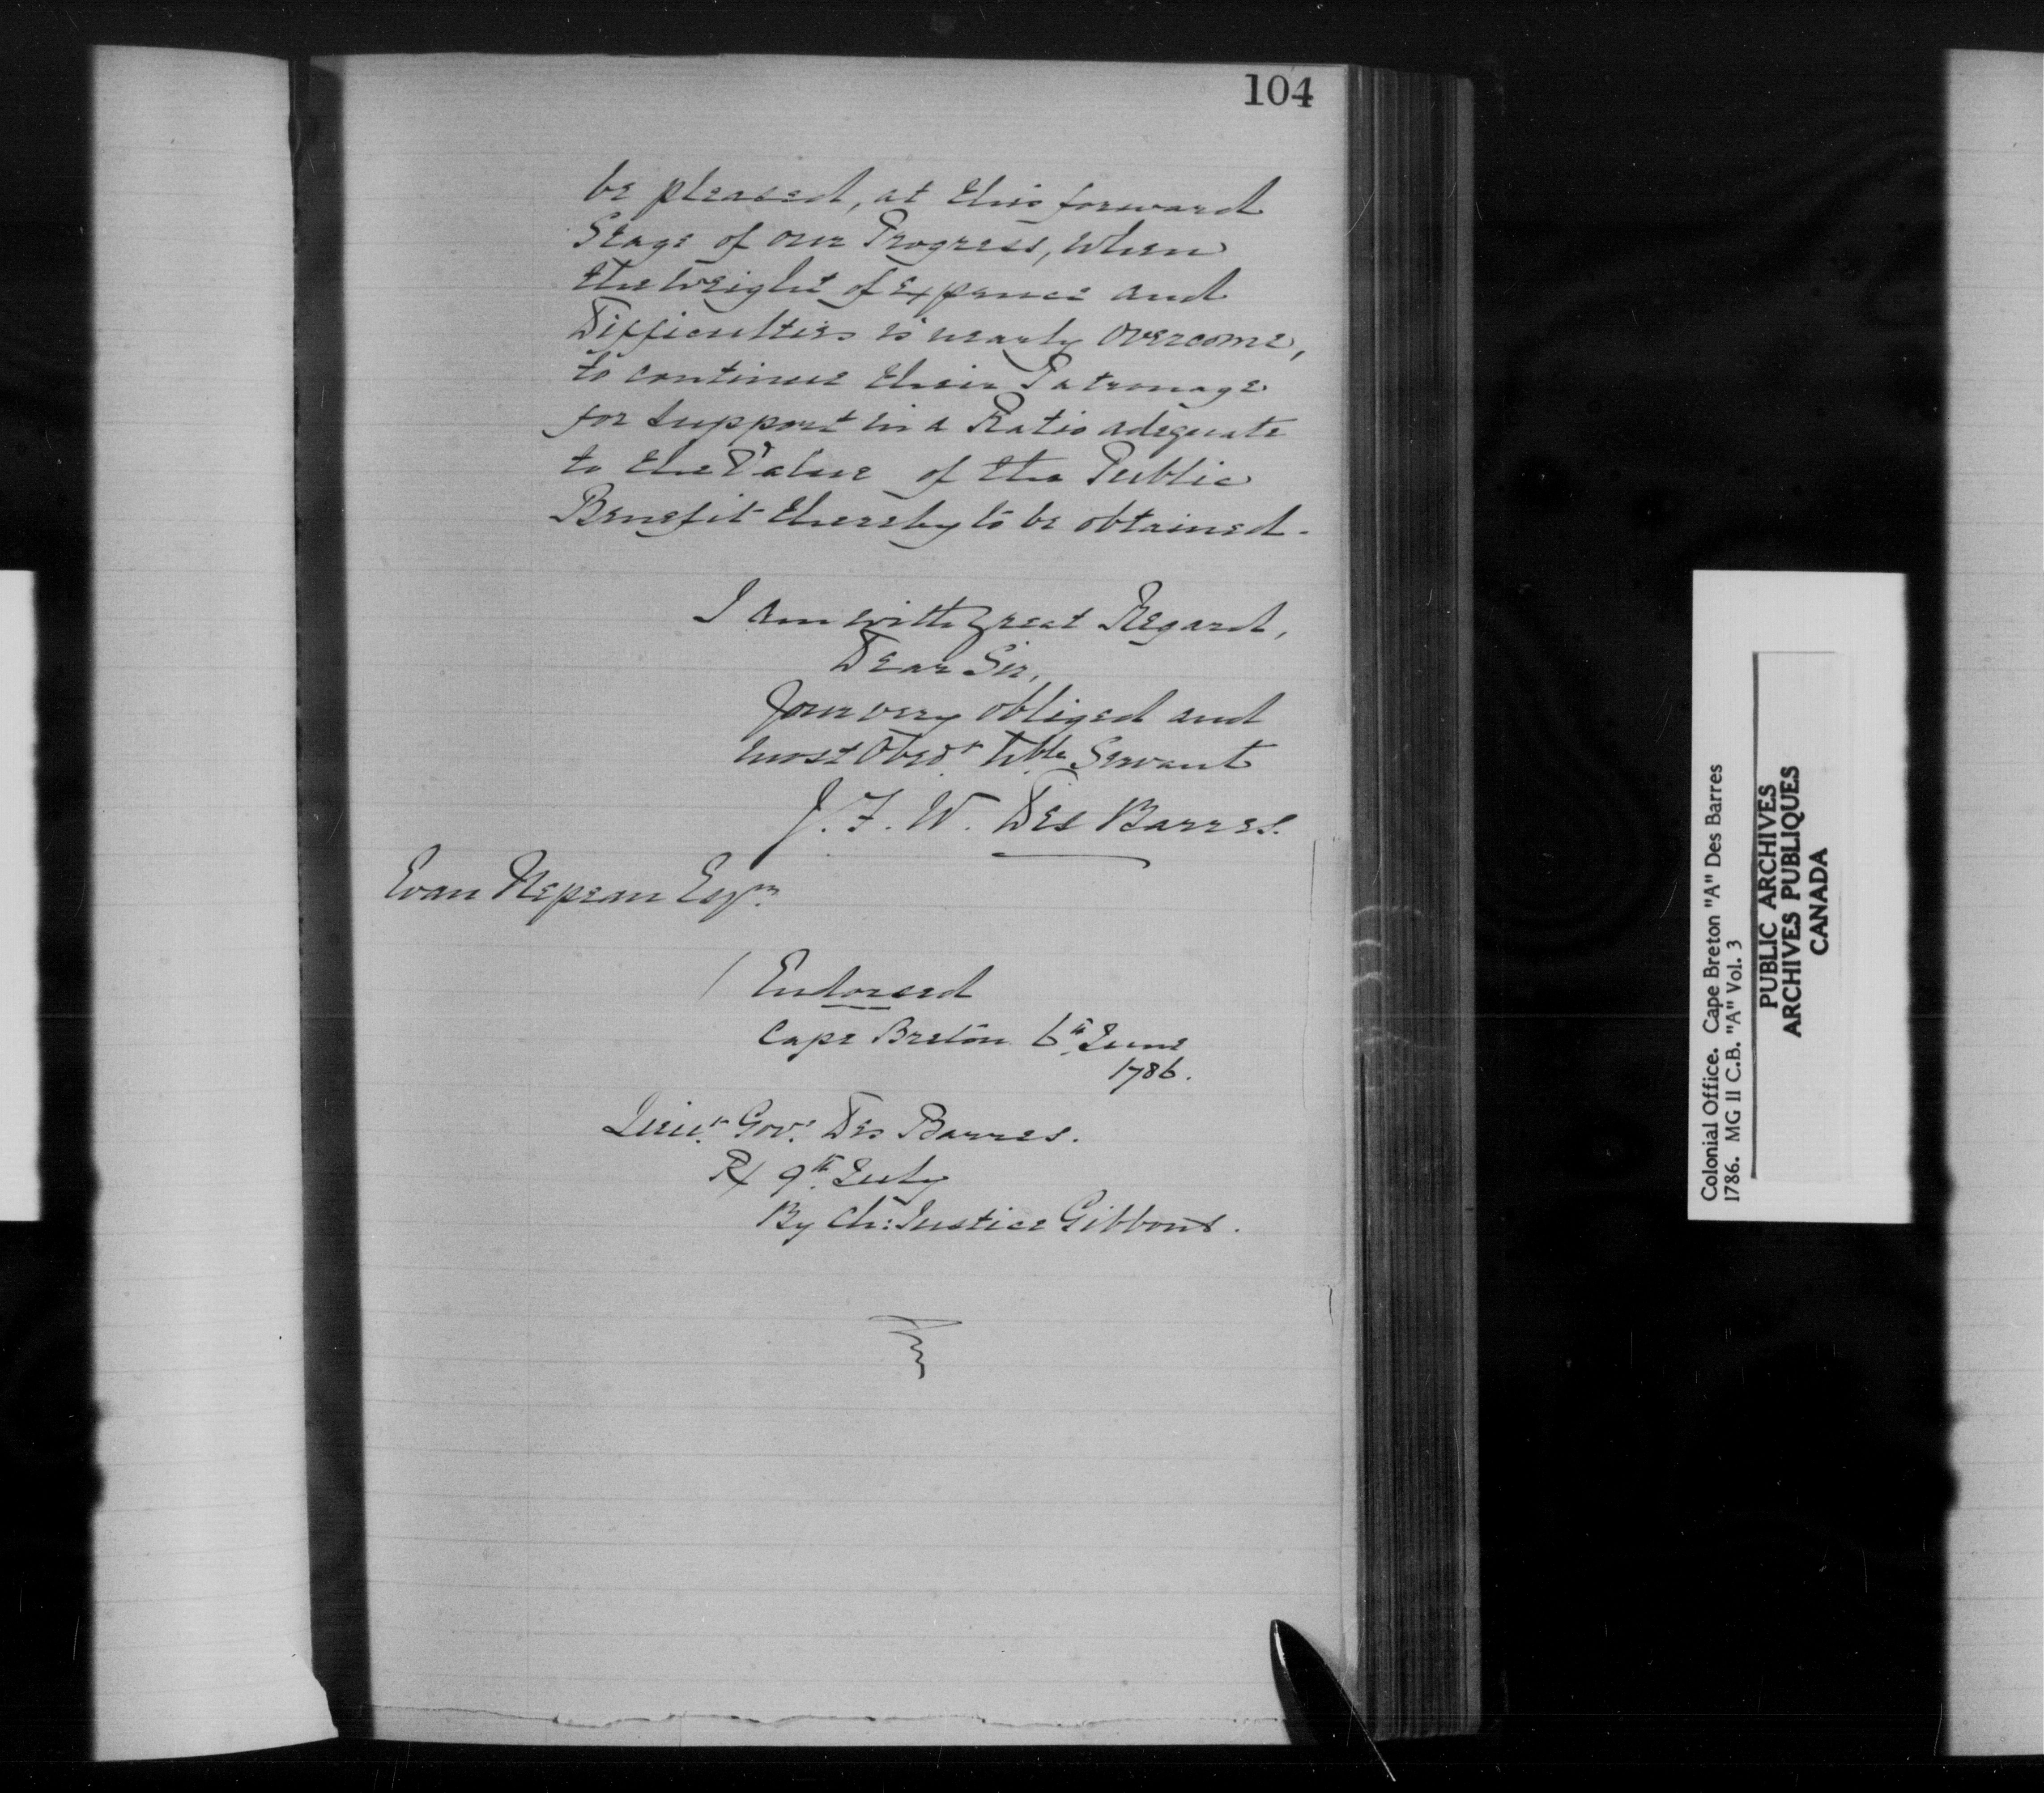 104
be pleased, at this forward
Stage of our Progress, when
the weight of Expence and
Difficulties is nearly overcome,
to continue their Patronage
for support in a Ratio adequate
to the Value of the Public
Benefit thereby to be obtained.
I am with great Regard,
Dear Sir,
Your very obliged and
most Obedt hble Servant
J. F. W. Des Barres.
Evan Nepean Esqre
( Endorsed
Cape Breton 6th June
1786.
Lieut Govr Des Barres.
Rx 9th July
By Ch: Justice Gibbons.
Colonial Office. Cape Breton "A" Des Barres
1786. MG II C.B. "A" Vol. 3
PUBLIC ARCHIVES
ARCHIVES PUBLIQUES
CANADA